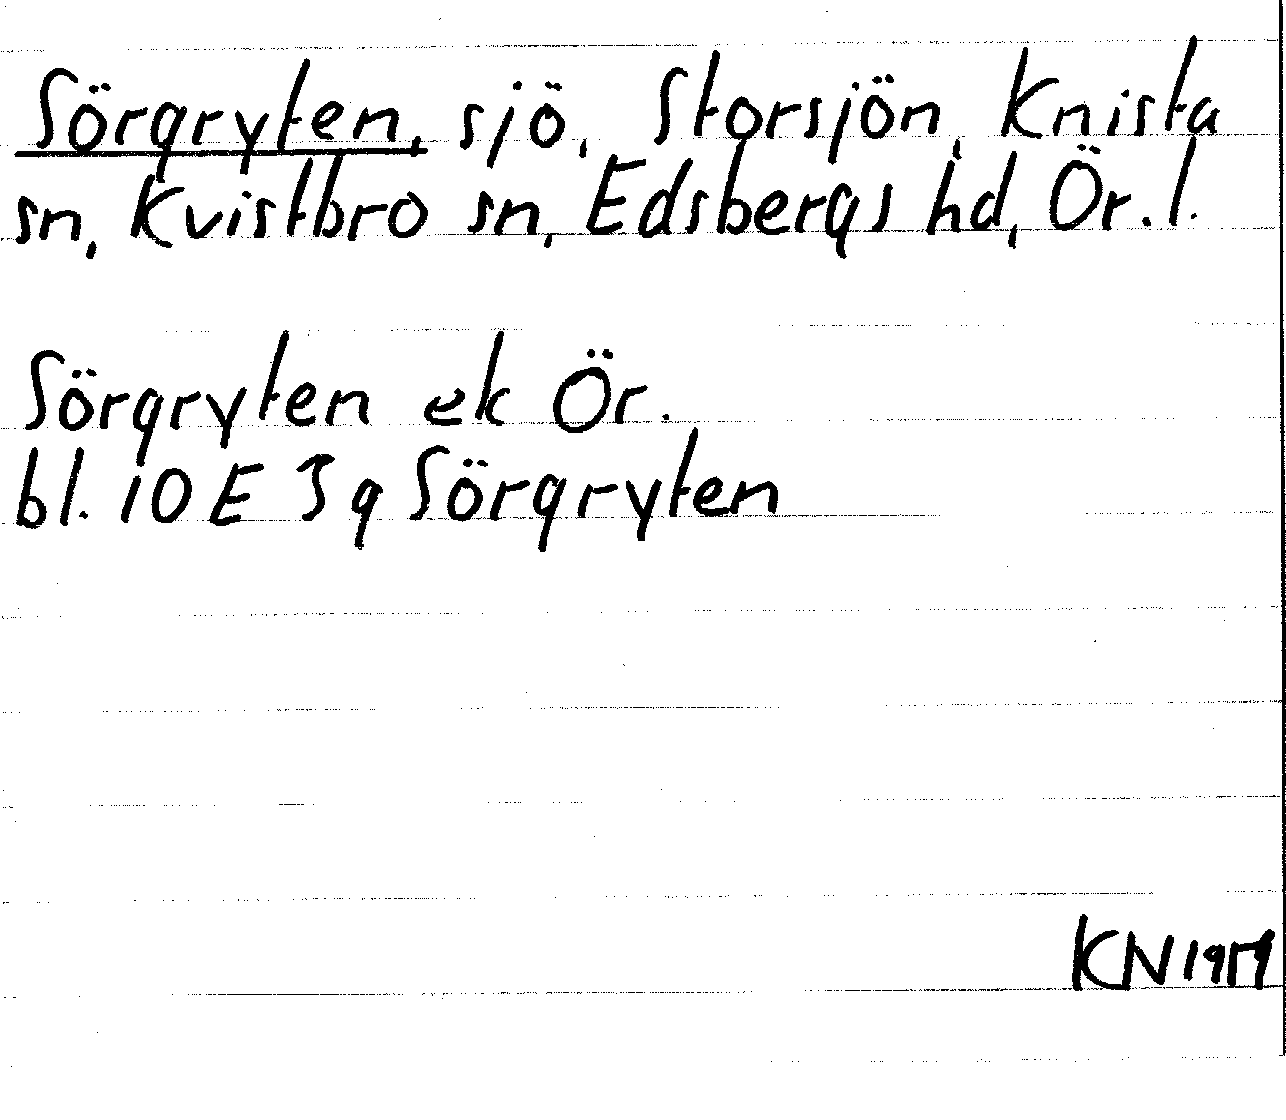 Sörgryten, sjö, Storsjön, Knista
sn, Kvistbro sn, Edsbergs hd, Ör. l.
Sörgryten ek Ör.
bl. 10 E 3 g Sörgryten
KN